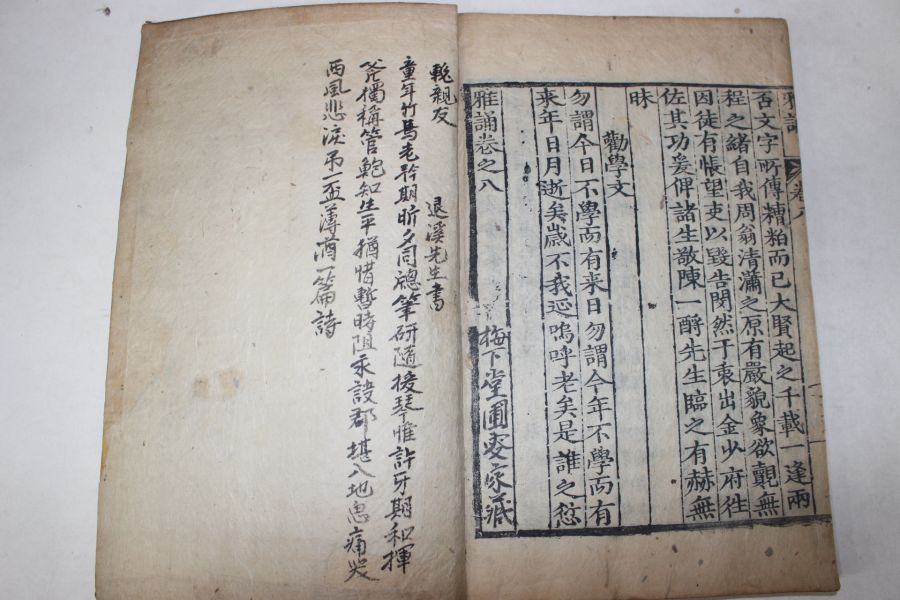 雅誦 卷八
否文字所傳糟粕而已大賢起之千載一逢兩
程之緒自我周翁清瀟之原有嚴貌象欲觀無
因徒有悵望吏以毀告閔然于衷出金少府往
佐其功爰俾諸生敬陳一酹先生臨之有赫無
昧
勸學文
勿謂今日不學而有来日勿謂今年不學而有
来年日月逝矣歲不我延嗚呼老矣是誰之愆
雅誦卷之八
梅下堂圃叟家藏
輓親友 退溪先生書
童年竹馬老期昕夕同窓筆研隨援琴惟許牙期和揮
斧獨稱管鮑知生平猶惜暫時阻永設郡堪入地悲痛哭
西風悲淚吊一盃薄酒一篇詩